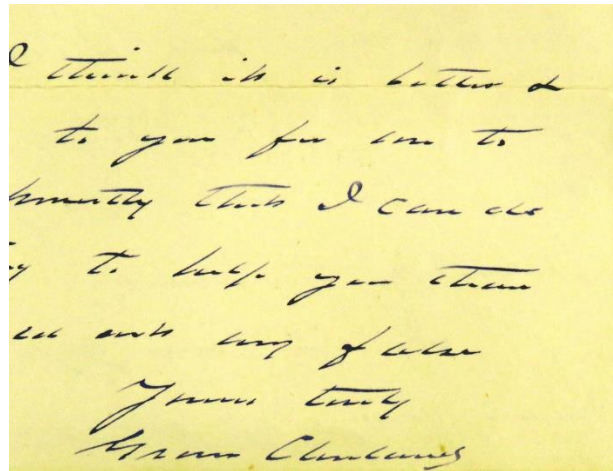 I think it is better &
to you for me to
honestly that I can do
to help you than
out any false
Yours truly
Grover Cleveland